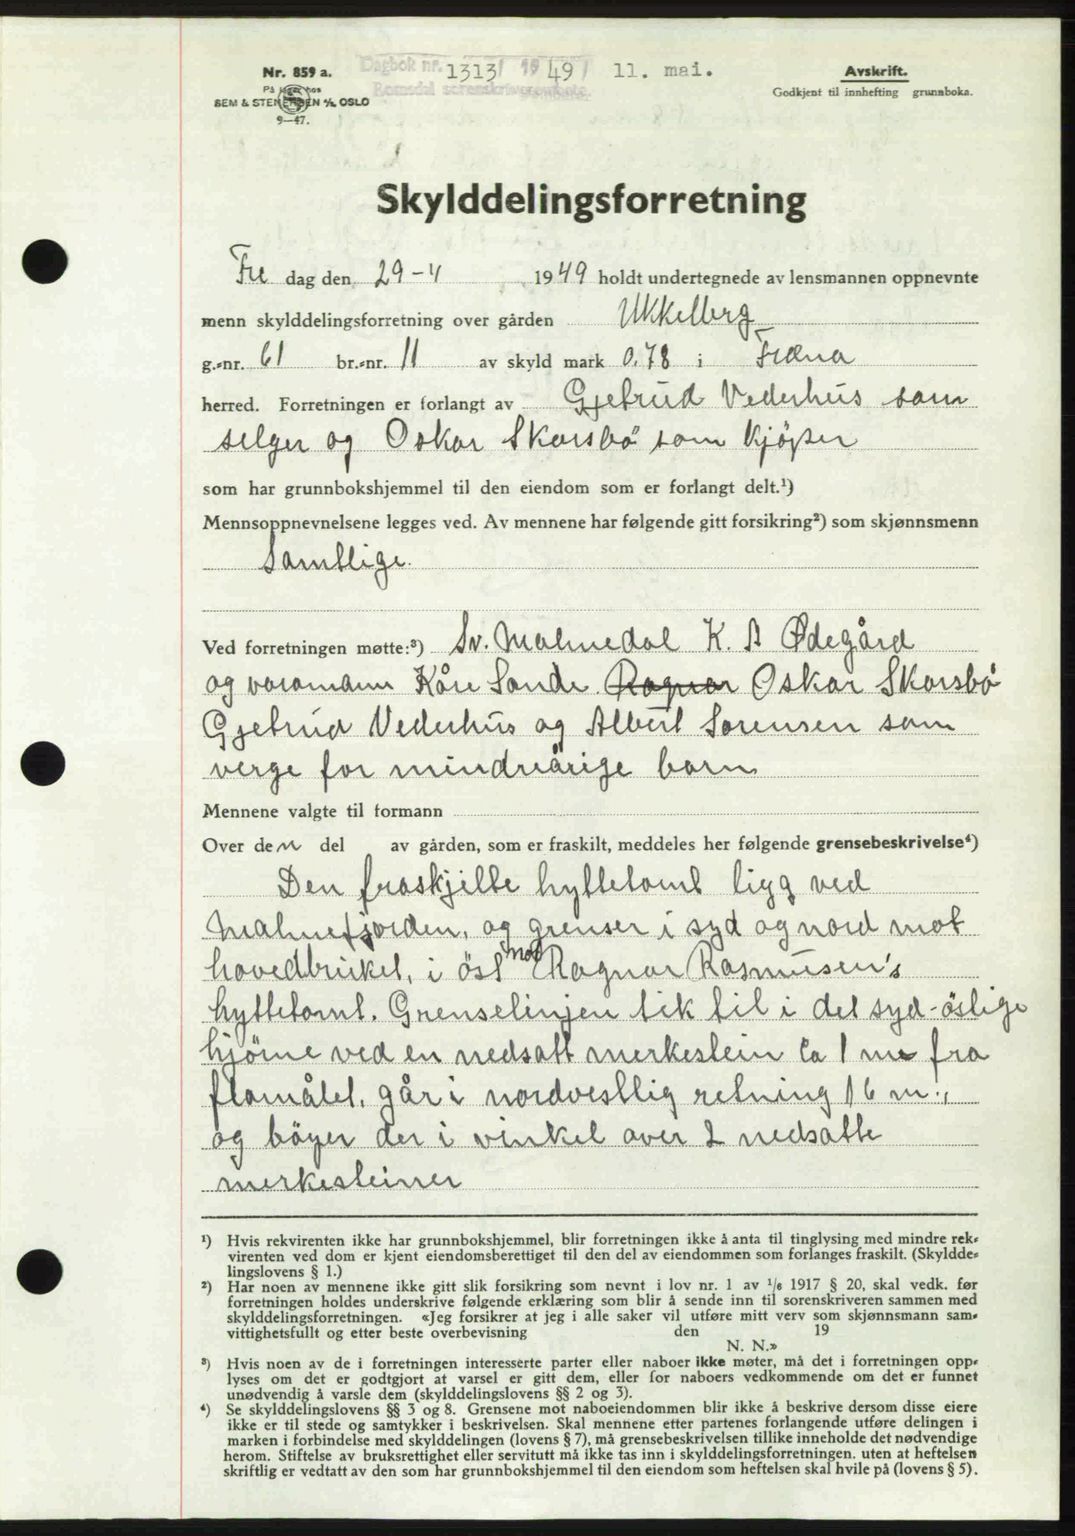 Nr. 859 a.
På lager hos
SEM & STENERSEN A/S OSLO
9—47.
Dagbok nr. 1313/1949 11. mai.
Romsdal sorenskriverembete.
Avskrift.
Godkjent til innhefting grunnboka.
Skylddelingsforretning
Fre dag den 29-4 1949 holdt undertegnede av lensmannen oppnevnte
menn skylddelingsforretning over gården Ukkelberg
g.-nr. 61 br.-nr. 11 av skyld mark 0.78 i Fræna
herred. Forretningen er forlangt av Gjetrud Vederhus som
selger og Oskar Skarsbö som kjöper
som har grunnbokshjemmel til den eiendom som er forlangt delt.¹)
Mennsoppnevnelsene legges ved. Av mennene har følgende gitt forsikring²) som skjønnsmenn
Samtlige.
Ved forretningen møtte:³) Sv. Malmedal K. A Ødegård
og varamann Kåre Sande Ragnar Oskar Skarsbö
Gjetrud Vederhus og Albert Sorensen som
verge for mindreårige barn
Mennene valgte til formann
Over den del av gården, som er fraskilt, meddeles her følgende grensebeskrivelse⁴)
Den fraskjilte hyttetomt ligg ved
Malmefjorden, og grenser i syd og nord mot
hovedbruket, i öst mot Ragnar Rasmusen's
hyttetomt. Grenselinjen tik til i det syd-östlige
hjörne ved en nedsatt merkestein ca 1 m fra
flomålet, går i nordvestlig retning 16 m.,
og böyer der i vinkel over 2 nedsatte
merkesteiner
¹) Hvis rekvirenten ikke har grunnbokshjemmel, blir forretningen ikke å anta til tinglysing med mindre rek-
virenten ved dom er kjent eiendomsberettiget til den del av eiendommen som forlanges fraskilt. (Skyldde-
lingslovens § 1.)
²) Har noen av mennene ikke gitt slik forsikring som nevnt i lov nr. 1 av 1/6 1917 § 20, skal vedk. før
forretningen holdes underskrive følgende erklæring som blir å sende inn til sorenskriveren sammen med
skylddelingsforretningen. «Jeg forsikrer at jeg i alle saker vil utføre mitt verv som skjønnsmann sam-
vittighetsfullt og etter beste overbevisning den 19
N. N.»
³) Hvis noen av de i forretningen interesserte parter eller naboer ikke møter, må det i forretningen opp-
lyses om det er godtgjort at varsel er gitt dem, eller for naboers vedkommende om det er funnet
unødvendig å varsle dem (skylddelingslovens §§ 2 og 3).
⁴) Se skylddelingslovens §§ 3 og 8. Grensene mot naboeiendommen blir ikke å beskrive dersom disse eiere
ikke er til stede og samtykker i beskrivelsen. Skal mennene etter partenes forlangende utføre delingen i
marken i forbindelse med skylddelingen (lovens § 7), må grensebeskrivelsen tillike inneholde det nødvendige
herom. Stiftelse av bruksrettighet eller servitutt må ikke tas inn i skylddelingsforretningen, uten at heftelsen
skriftlig er vedtatt av den som har grunnbokshjemmel til den eiendom som heftelsen skal hvile på (lovens § 5).